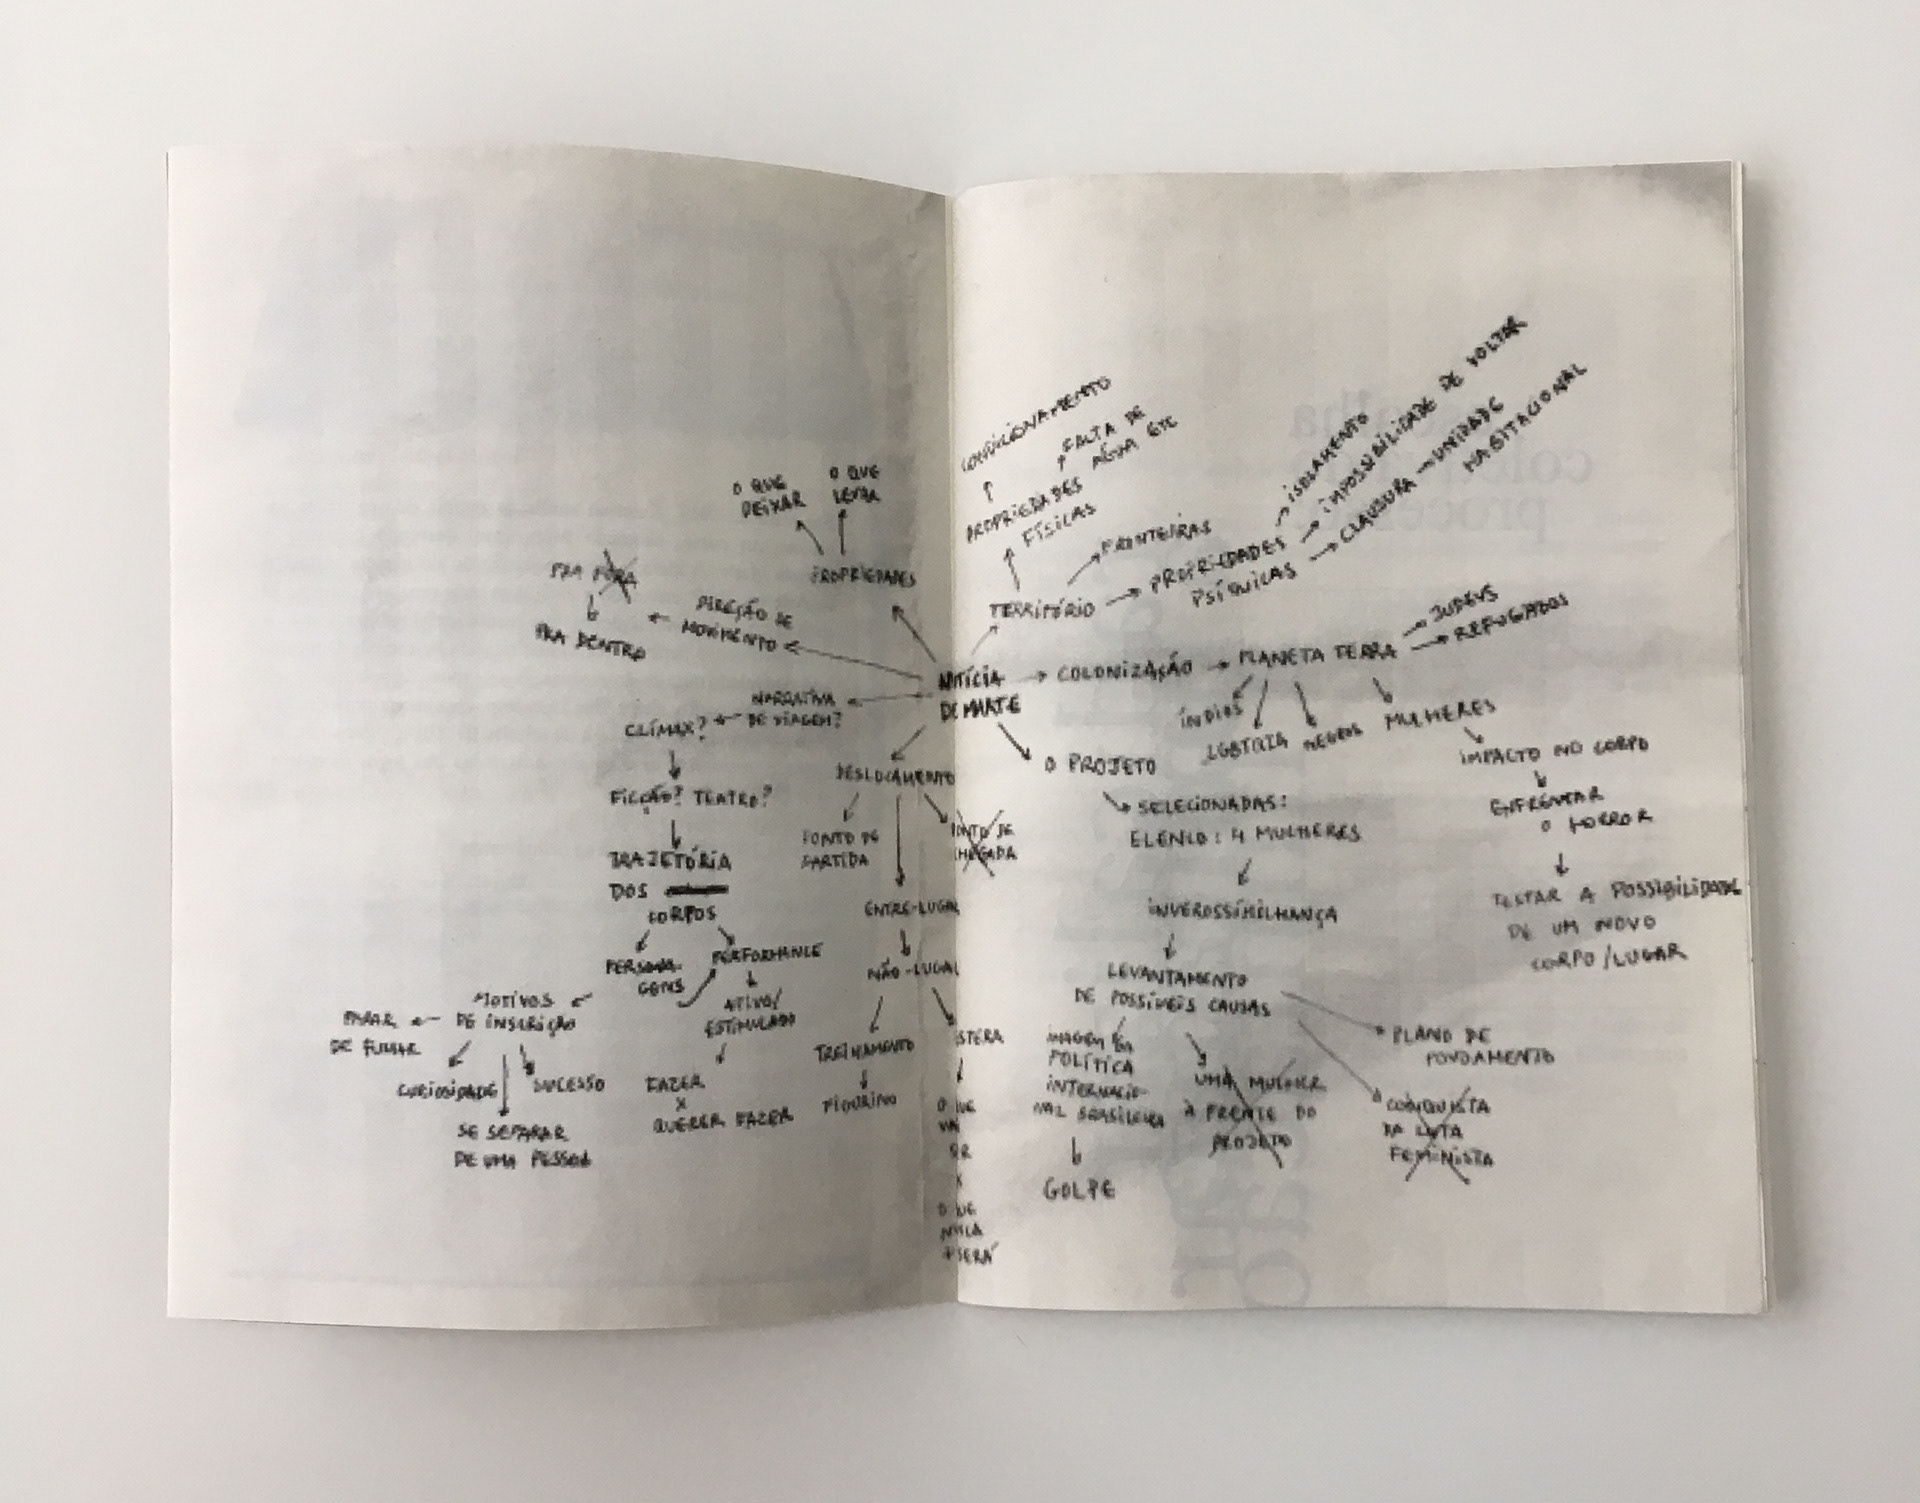 O QUE
DEIXAR
O QUE
LEVAR
PROPRIEDADES
PRA FORA
PRA DENTRO
DIREÇÃO DE
MOVIMENTO
NARRATIVA
DE VIAGEM?
CLÍMAX?
FICÇÃO? TEATRO?
TRAJETÓRIA
DOS
CORPOS
PERSONA-
GENS
PERFORMANCE
ATIVO/
ESTIMULADO
FAZER
X
QUERER FAZER
MOTIVOS
DE INSCRIÇÃO
PARAR
DE FUMAR
CURIOSIDADE
SUCESSO
SE SEPARAR
DE UMA PESSOA
DESLOCAMENTO
PONTO DE
PARTIDA
PONTO DE
CHEGADA
ENTRE-LUGAR
NÃO-LUGAR
TREINAMENTO
FIGURINO
ESPERA
O QUE
X
O QUE
NUNCA
+ SERÁ
NOTÍCIA
DE MARTE
CONDICIONAMENTO
FALTA DE
ÁGUA ETC
PROPRIEDADES
FÍSICAS
TERRITÓRIO
FRONTEIRAS
PROPRIEDADES
PSÍQUICAS
ISOLAMENTO
IMPOSSIBILIDADE DE VOLTAR
CLAUSURA → UNIDADE
HABITACIONAL
COLONIZAÇÃO
PLANETA TERRA
JUDEUS
REFUGIADOS
ÍNDIOS
LGBTQIA
NEGROS
MULHERES
IMPACTO NO CORPO
ENFRENTAR
O HORROR
TESTAR A POSSIBILIDADE
DE UM NOVO
CORPO/LUGAR
O PROJETO
SELECIONADAS:
ELENCO: 4 MULHERES
INVEROSSIMILHANÇA
LEVANTAMENTO
DE POSSÍVEIS CAUSAS
IMAGEM DA
POLÍTICA
INTERNACIO-
NAL BRASILEIRA
GOLPE
UMA MULHER
À FRENTE DO
PROJETO
PLANO DE
POVOAMENTO
CONQUISTA
DA LUTA
FEMINISTA